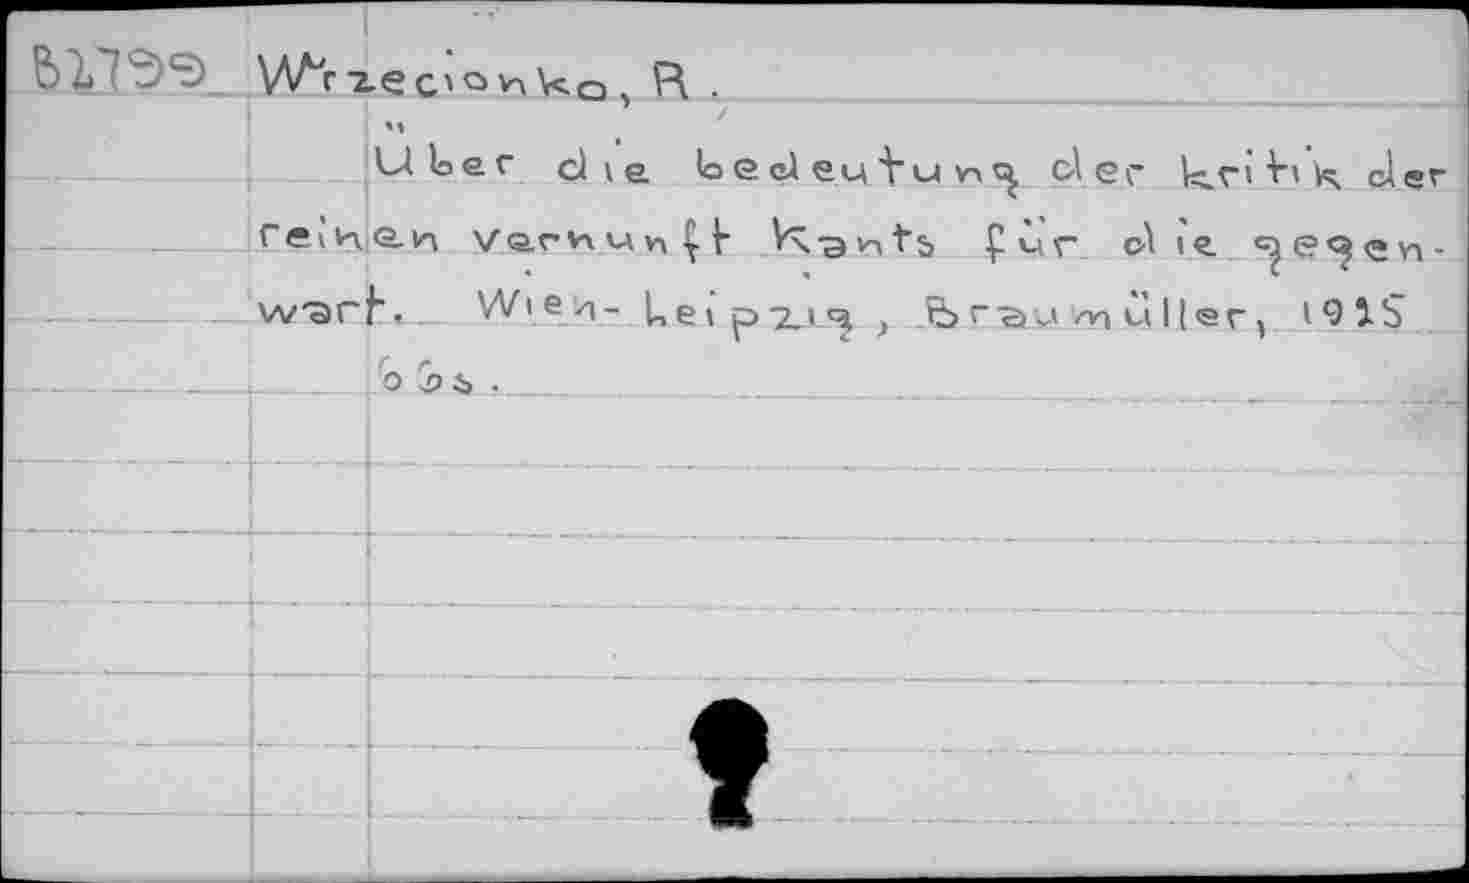 B2799 Wrzecionko, R.
Über die bedeutung der kritik der
reinen vernunft Kants für die gegen-
wart. Wien-Leipzig, Braumüller, 1925
66s.